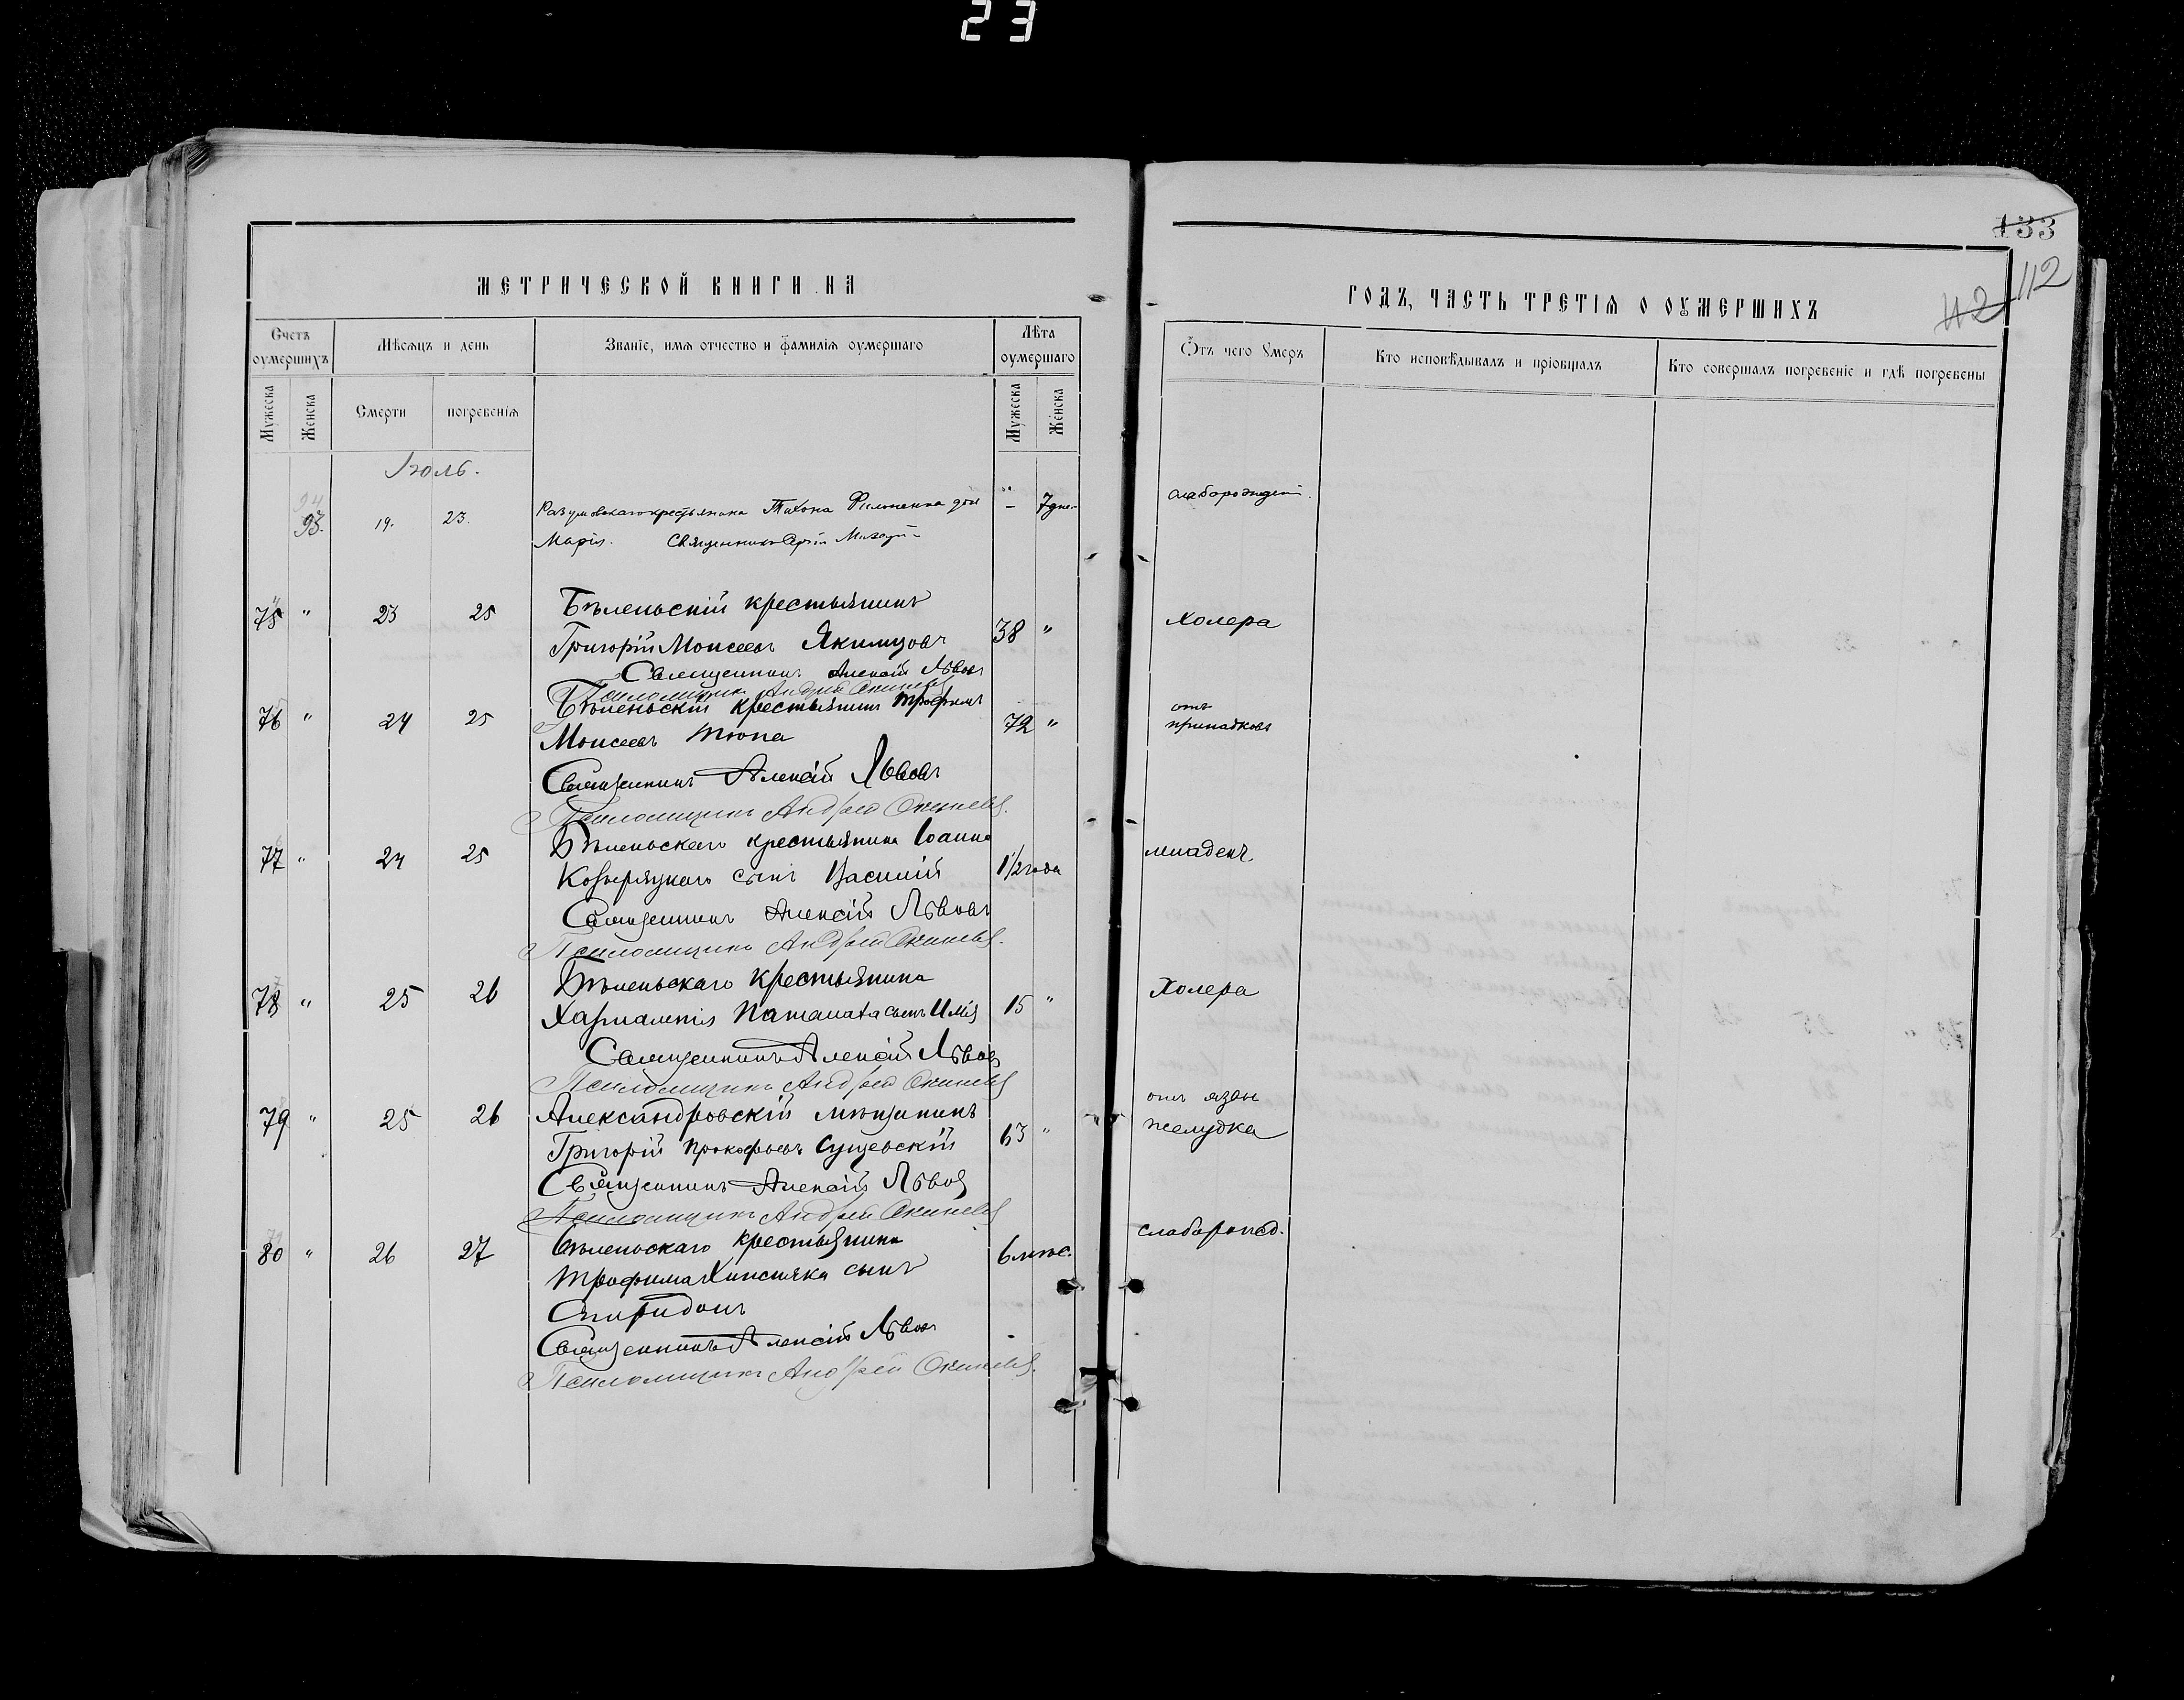 23
МЕТРИЧЕСКОЙ КНИГИ НА
Счетъ оумершихъ
Мѣсяцъ и день
Званіе, имя отчество и фамилія оумершаго
Лѣта оумершаго
Мужеска
Женска
Смерти
погребенія
Мужеска
Женска
Іюль.
93. 19. 23. Разумовскаго крестьянина Тихона Филоненка дочь – 7 дне
Марія. Священникъ
75 " 23 25 Бѣленьскій крестьянинъ
Григорій Моисеевъ Якимцовъ 38 "
Священникъ Алексій Львовъ
Псаломщикъ Андрей
76 " 24 25 Бѣленьскій крестьянинъ Трофимъ
Моисеевъ Тюпа 72 "
Священникъ Алексій Львовъ
Псаломщикъ Андрей
77 " 24 25 Бѣленьскаго крестьянина Іоанна
Козыряцкаго сынъ Василій 1 1/2 года
Священникъ Алексій Львовъ
Псаломщикъ Андрей
78 " 25 26 Бѣленьскаго крестьянина
Харлампія сынъ Илія 15 "
Священникъ Алексій Львовъ
Псаломщикъ Андрей
79 " 25 26 Александровскій мѣщанинъ
Григорій Прокофьевъ Сущевскій 63 "
Священникъ Алексій Львовъ
Псаломщикъ Андрей
80 " 26 27 Бѣленьскаго крестьянина 6 мѣс.
Трофима сынъ
Спиридонъ
Священникъ Алексій Львовъ
Псаломщикъ Андрей
133
112
112
ГОДЪ, ЧАСТЬ ТРЕТІЯ О ОУМЕРШИХЪ
Ѿтъ чего Умеръ
Кто исповѣдывалъ и пріобщалъ
Кто совершалъ погребеніе и гдѣ погребены
слаборожден.
Холера
отъ
припадковъ
младенч.
Холера
отъ язвы
желудка
слаборожд.